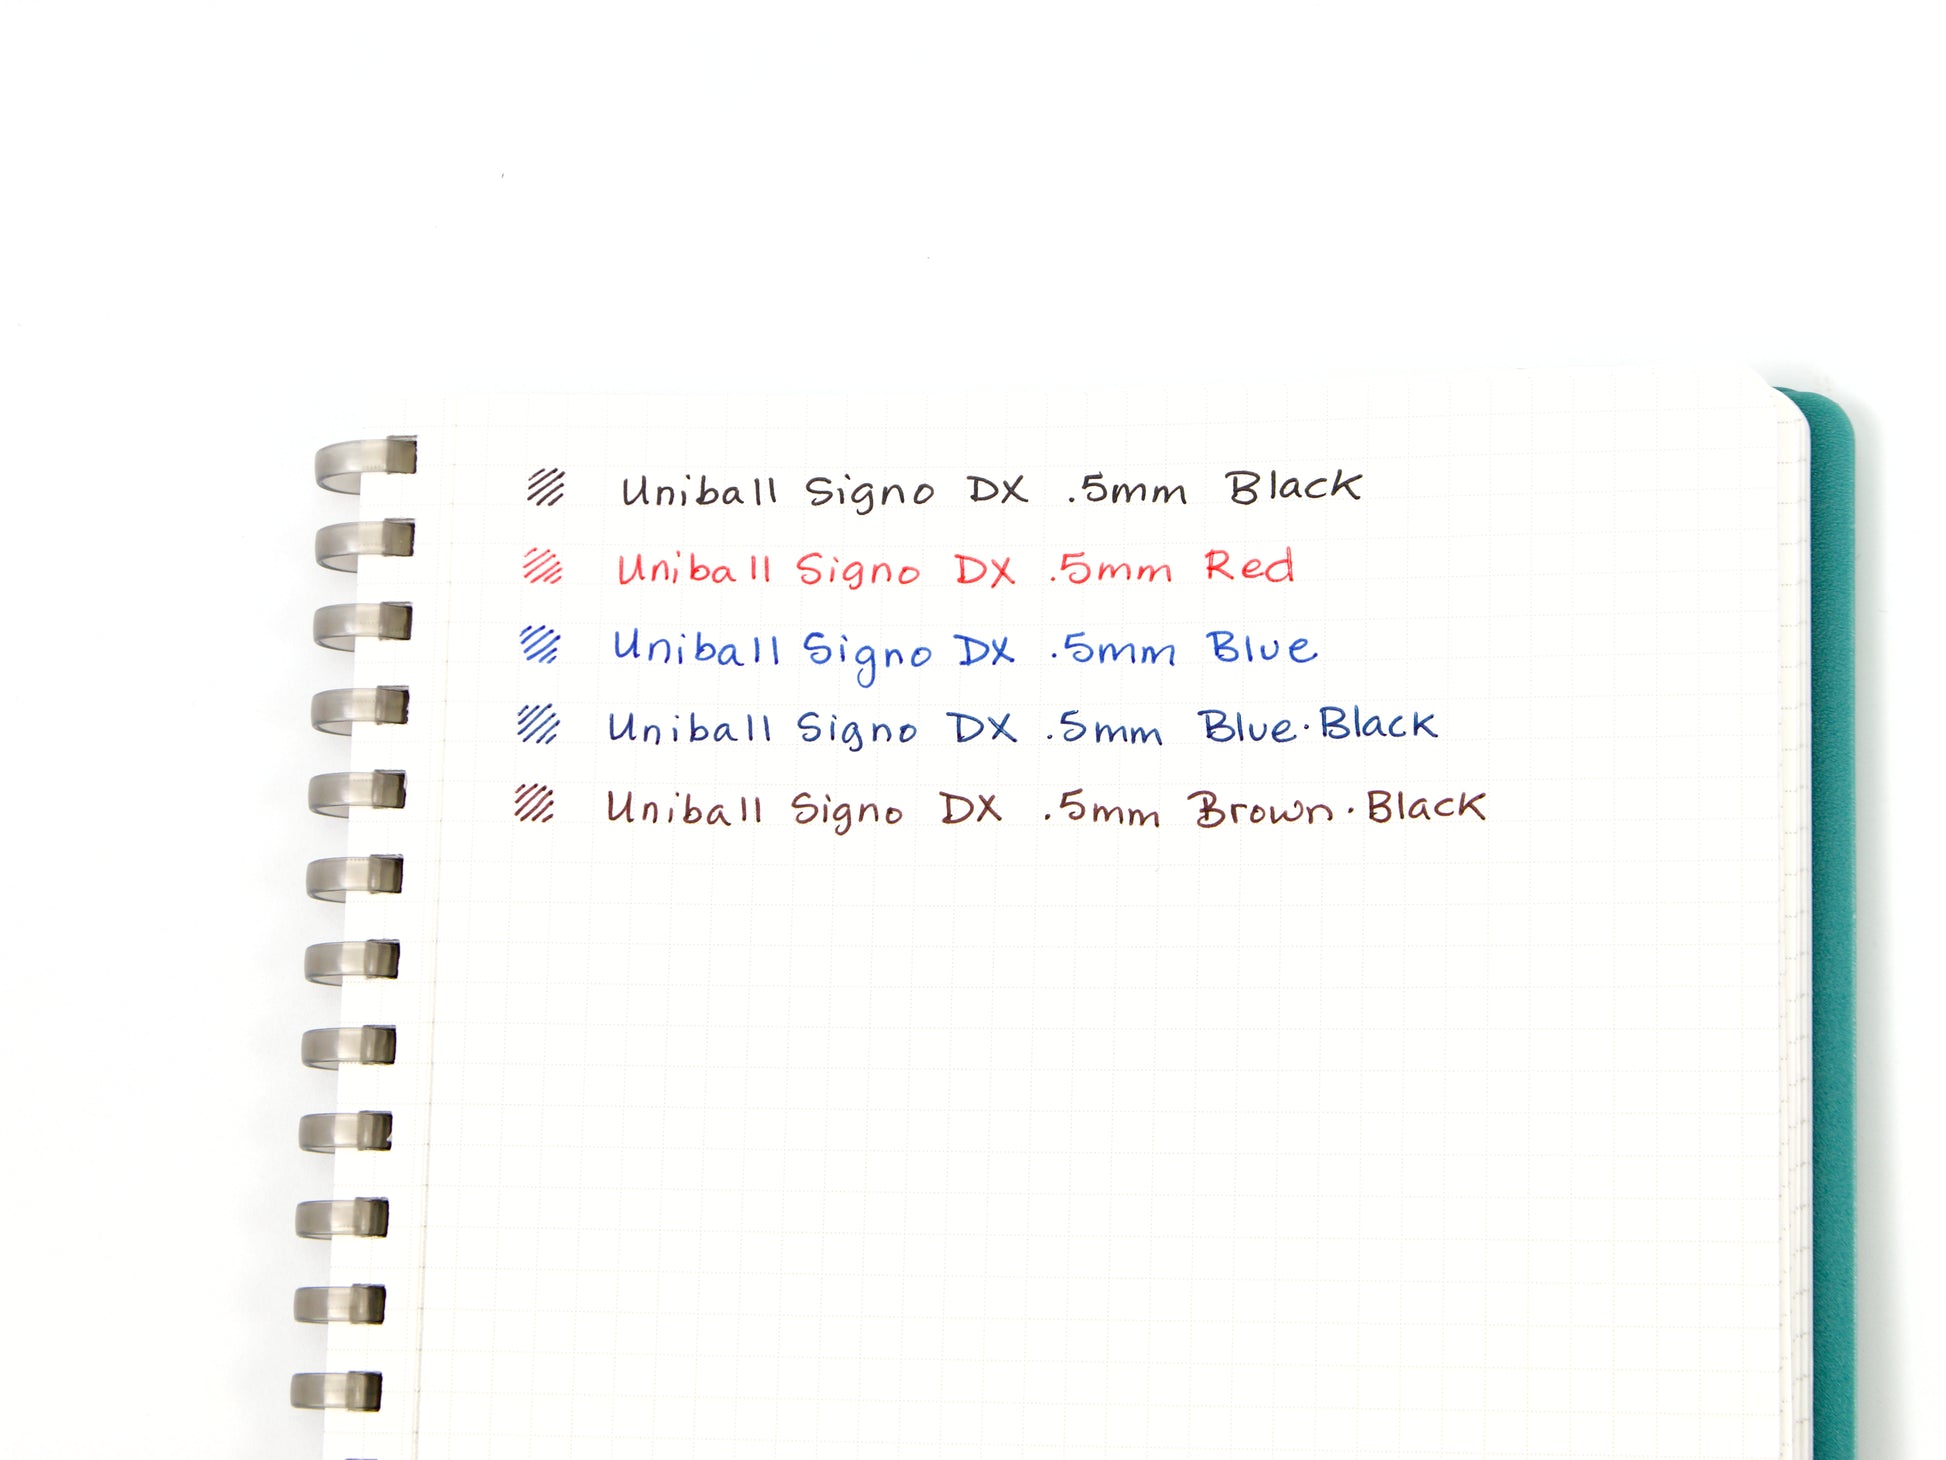 Uniball Signo DX .5mm Black
Uniball Signo DX .5mm Red
Uniball Signo DX .5mm Blue
Uniball Signo DX .5mm Blue·Black
Uniball Signo DX .5mm Brown·Black